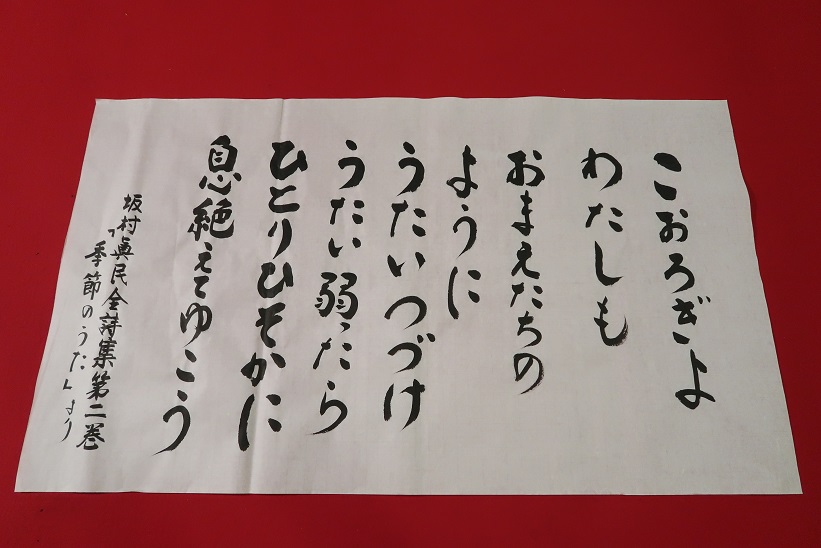 こおろぎよ
わたしも
おまえたちの
ように
うたいつづけ
うたい弱ったら
ひとりひそかに
息絶えてゆこう
坂村真民全詩集第二巻
「季節のうた」より